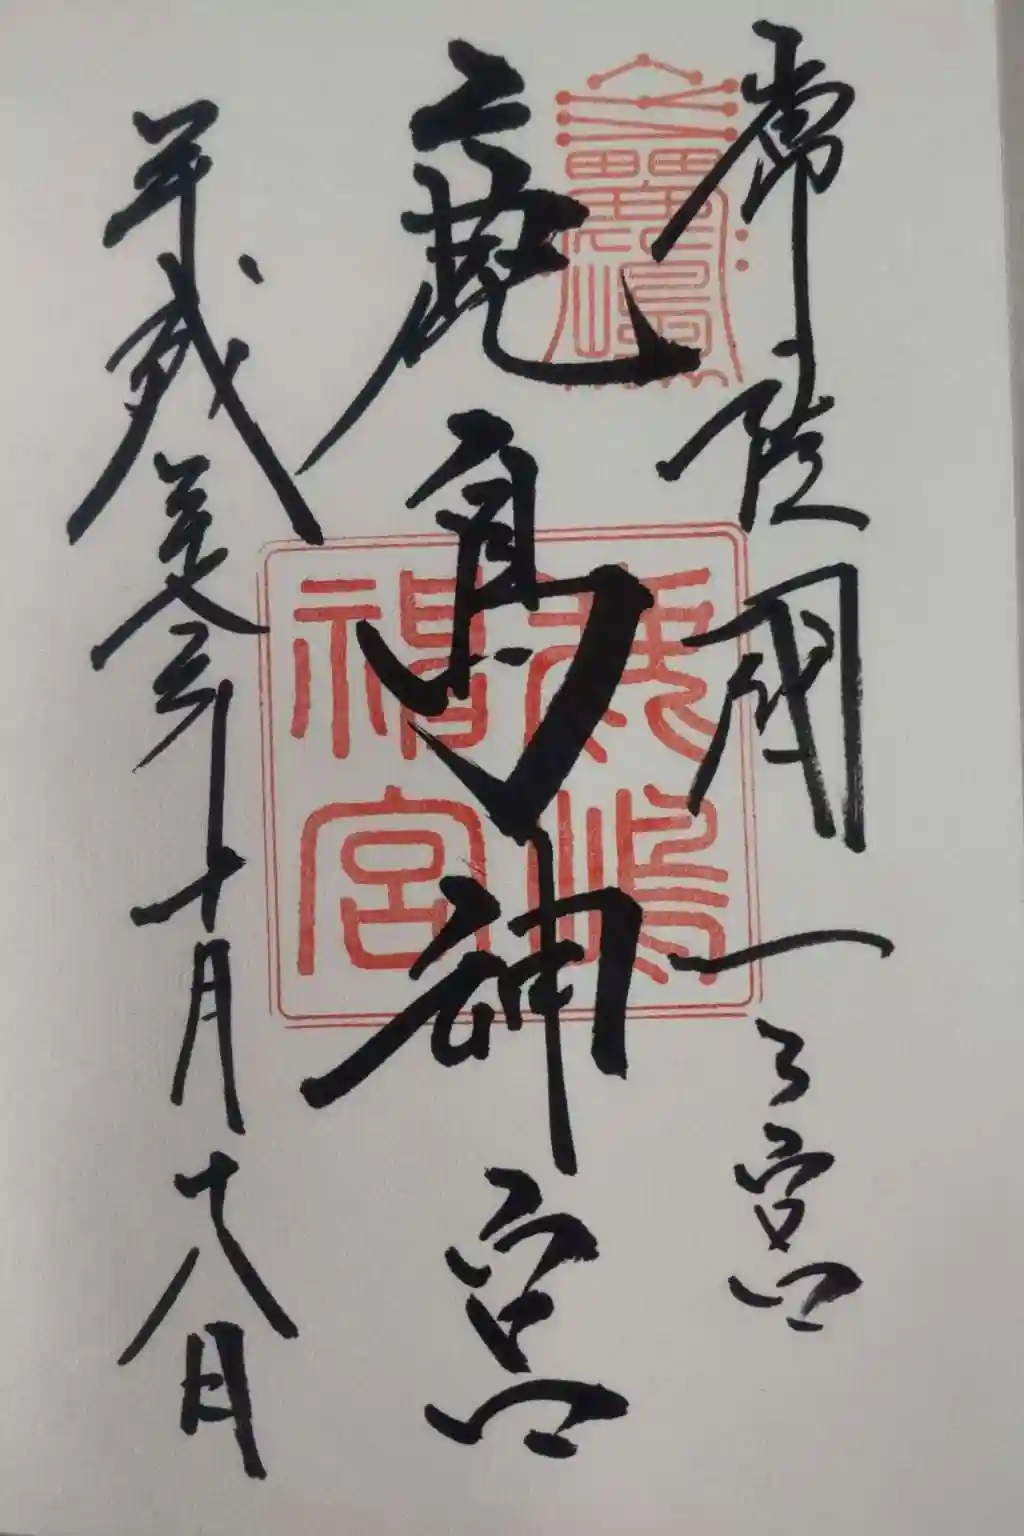 常陸國一之宮
鹿島神宮
平成
年十月十八日
鹿嶋神宮